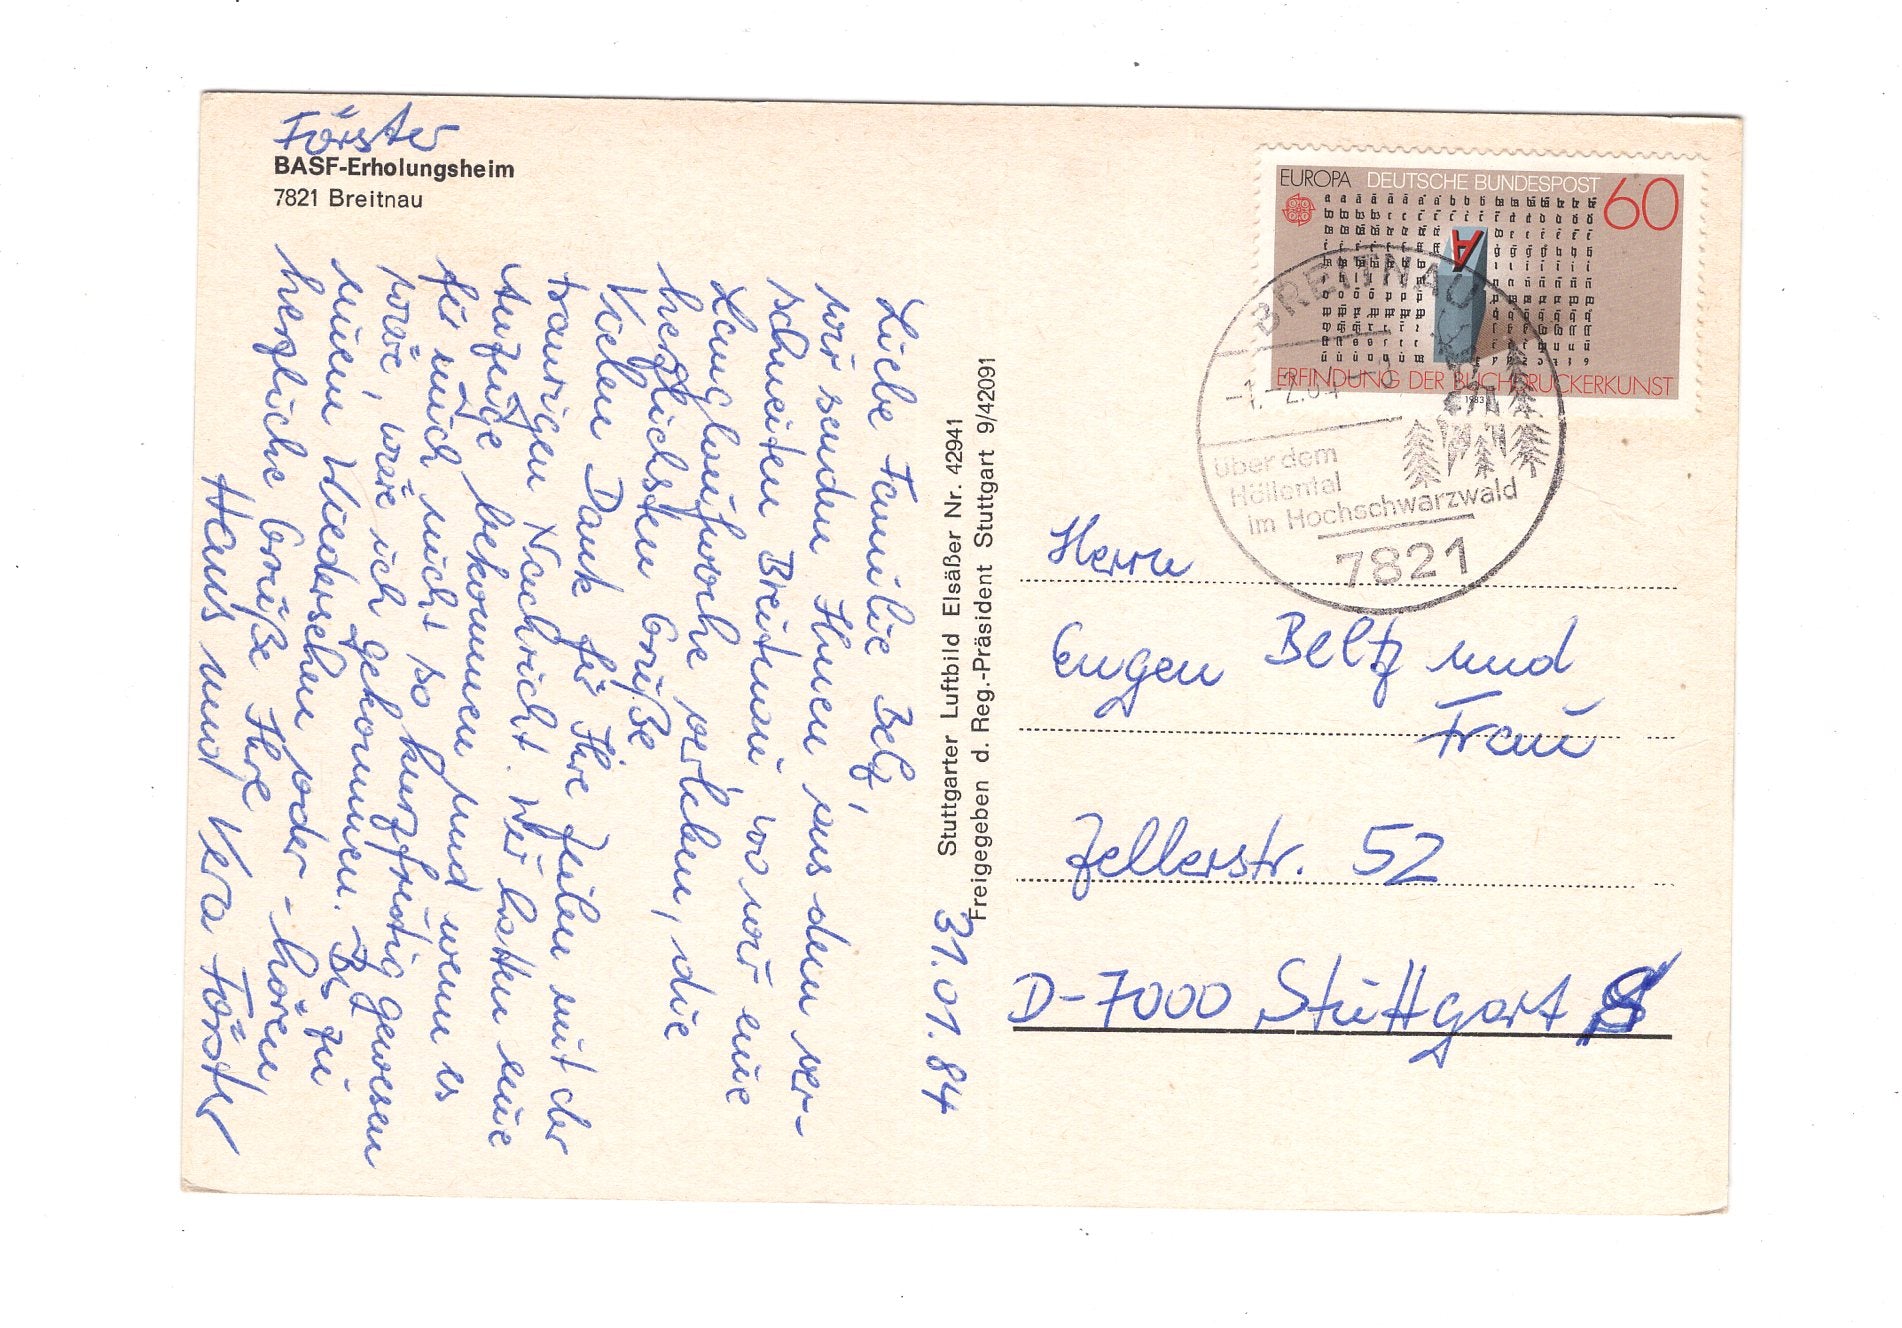 Förster
BASF-Erholungsheim
7821 Breitnau
31.01.84
Liebe Familie Beltz,
wir senden Ihnen aus dem ver-
schneiten Breitnau wo wir eine
Langlaufwoche verleben, die
herzlichsten Grüße
Vielen Dank für Ihre Zeilen mit der
traurigen Nachricht. Wir hatten eine
Anzeige bekommen und wenn es
für mich nicht so kurzfristig gewesen
wäre, wäre ich gekommen. Bis zu
einem Wiedersehen oder -hören
herzliche Grüße Ihre
Hans und Vera Förster
Stuttgarter Luftbild Elsäßer Nr. 42941
Freigegeben d. Reg.-Präsident Stuttgart 9/42091
EUROPA DEUTSCHE BUNDESPOST 60
A
ERFINDUNG DER BUCHDRUCKERKUNST
1983
BREITNAU
-1.-2.84
über dem
Höllental
im Hochschwarzwald
7821
Herrn
Eugen Beltz und
Frau
Zellerstr. 52
D-7000 Stuttgart